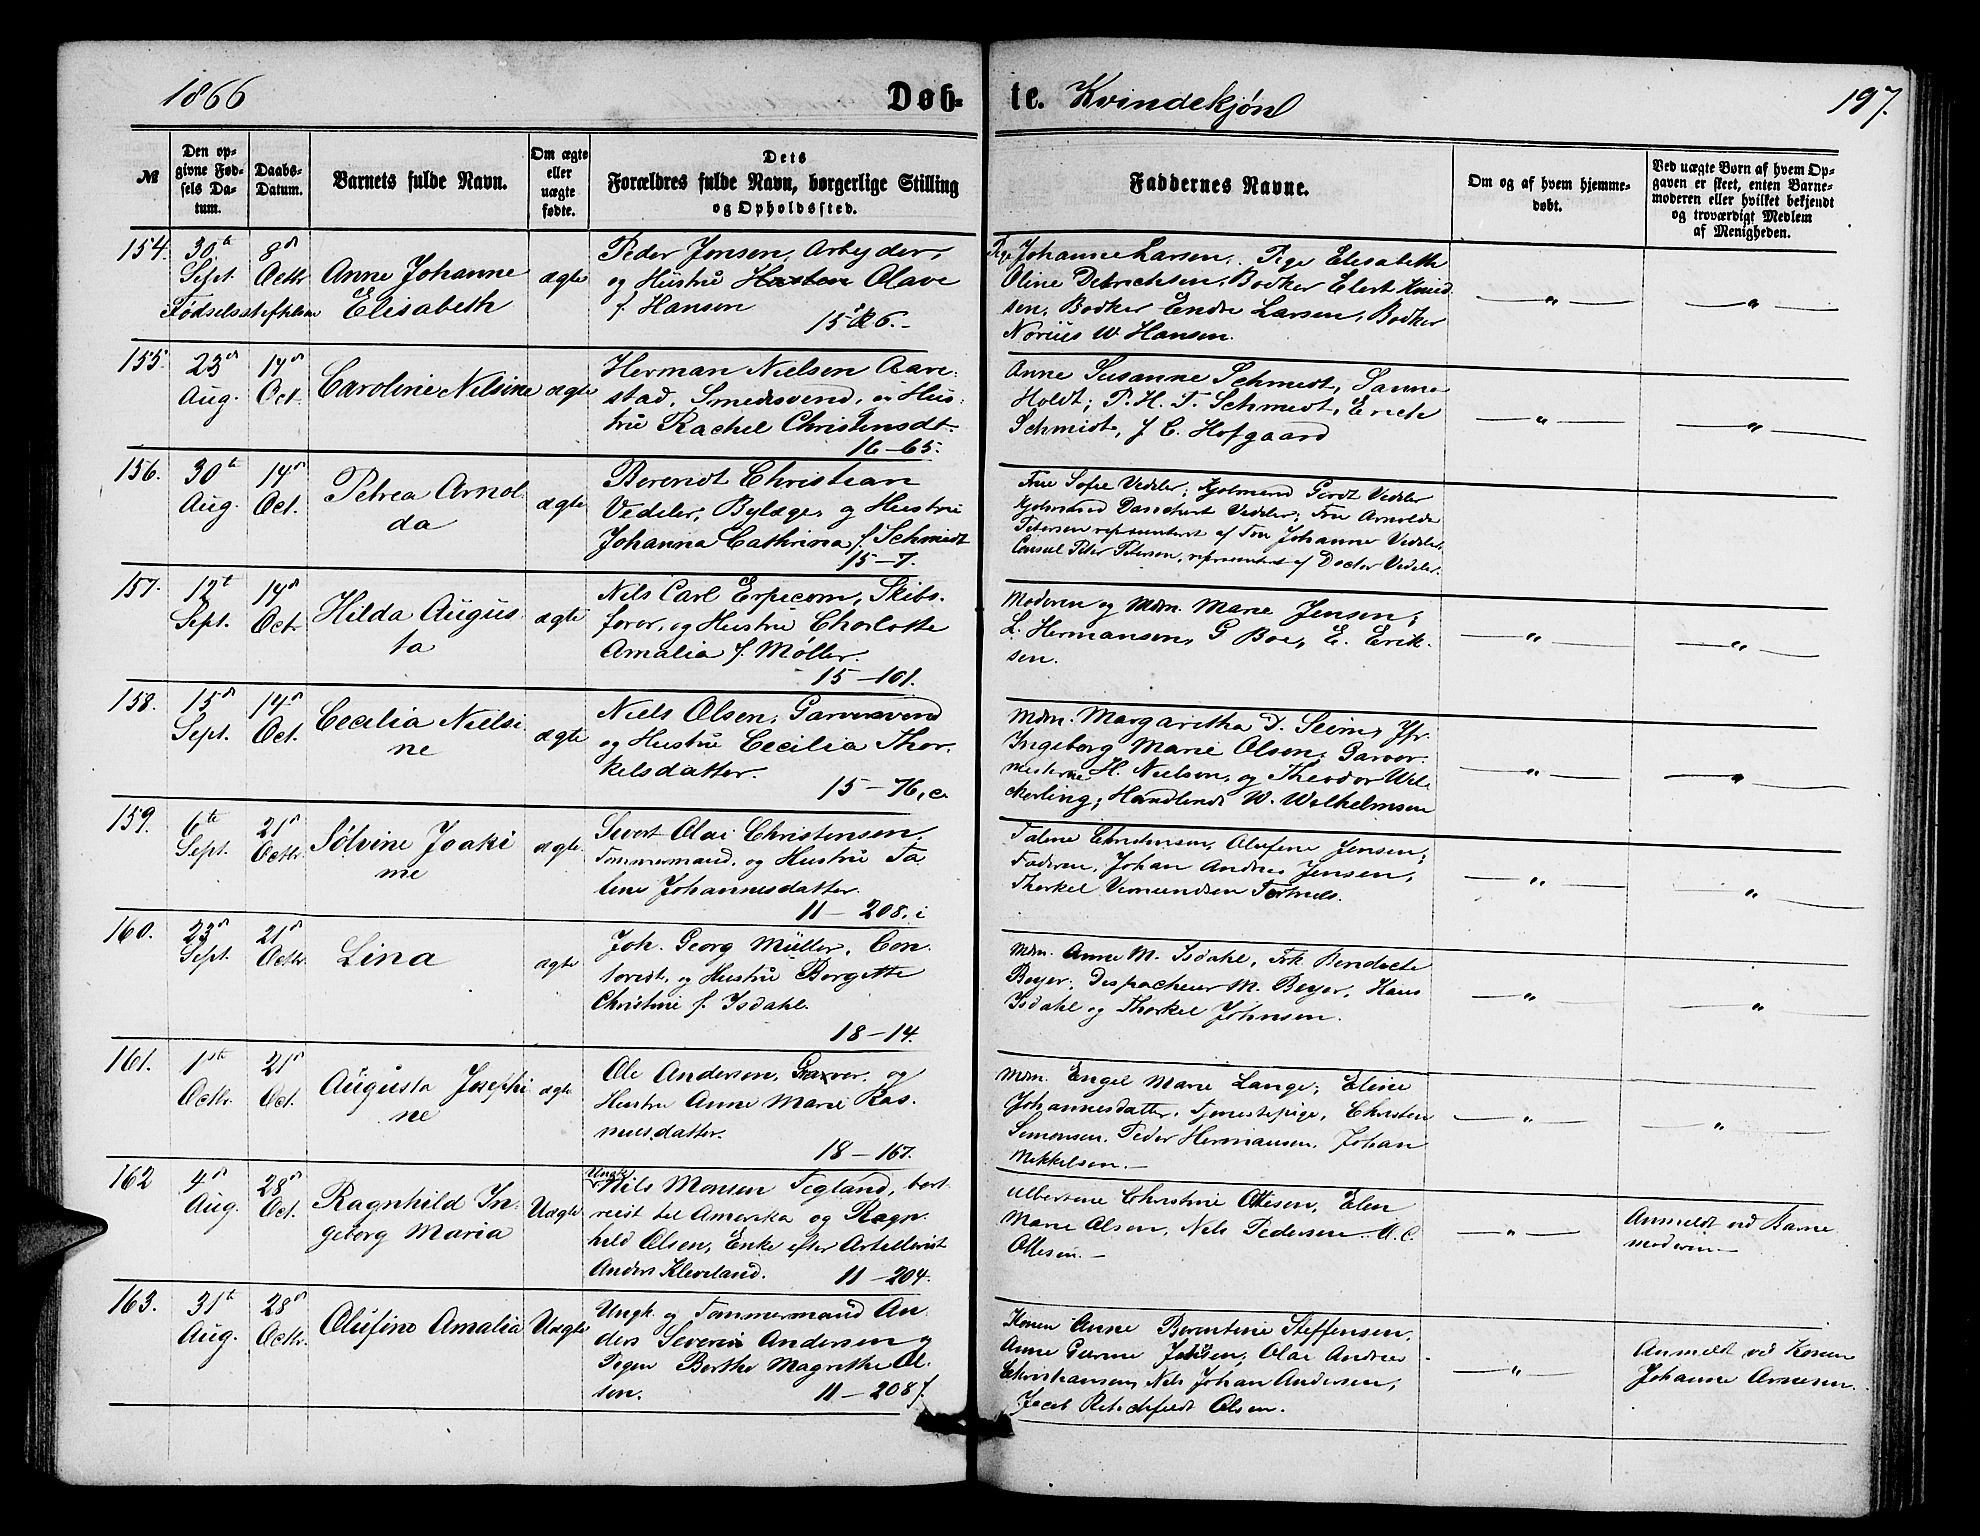 1866 Døb- te. Kvindekjøn 197.
№ Den opgivne Fødsels Datum. Daabs-Datum. Barnets fulde Navn. Om ægte eller uægte fødte. Dets Forældres fulde Navn, borgerlige Stilling og Opholdssted. Faddernes Navne. Om og af hvem hjemmedøbt. Ved uægte Børn af hvem Opgaven er skeet, enten Barnemoderen eller hvilket bekjendt og troværdigt Medlem af Menigheden.
154. 30te Sept. 8de Octbr
Fødselsstiftelsen
Anne Johanne
Elisabeth
ægte
Peder Jensen, Arbejder,
og Hustru Olave
f. Hansen
15 R 6.
Pige Johanne Larsen, Pige Elisabeth
Oline Detrichsen, Bødker Elert Knud
sen, Bødker Endre Larsen, Bødker
W. Hansen.
" "
155. 23de Aug. 14de Oct.
Caroline Nilsine
ægte
Herman Nielsen Aare
stad, Smedsvend, og Hus
tru Rachel Christensdt.
16-65.
Anne Susanne Schmidt, Sanne
Holdt; P. H. T. Schmidt, Erich
Schmidt, J C. Hofgaard
" "
156. 30te Aug. 14de Oct.
Petrea Arnol
da
ægte
Berendt Christian
Vedeler, Bylæge, og Hustru
Johanna Cathrina f. Schmidt
15-7.
Frue Sofie Vedeler; Kjøbmand Gerdt Vedeler
Kjøbmand Danckert Vedeler; Fru Arnolda
Petersen representeret af Fru Johanne Vedeler,
Consul Peter Petersen, representeret af Doctor Vedeler.
157. 12te Sept. 14de Octr
Hilda Augus
ta
ægte
Nils Carl Erpecom, Skibs
fører, og Hustru Charlotte
Amalia f. Møller.
15-101.
Moderen og Mdm. Marie Jensen;
L. Hermansen, G Boe, E. Erik
sen.
" "
158. 15de Sept. 14de Oct.
Cecilia Nielsi
ne
ægte
Niels Olsen, Garversvend
og Hustru Cecilia Thor
kelsdatter.
15-76, c.
Mdm. Margaretha D. Seim, Jfr.
Ingeborg Marie Olsen, Garver
mesterne H. Nielsen, og Theodor Wil
ckerling; Handlende W. Wilhelmsen
" "
159. 6te Sept. 21de Octbr.
Sølvine Joaki
me
ægte
Sivert Olai Christensen,
Tømmermand, og Hustru Ta
line Johannesdatter.
11-208, i
Taline Christensen, Olufine Jensen;
Faderen, Johan Andreas Jensen,
Thorkel Vemundsen
" "
160. 23de Sept. 21de Octbr.
Lina
ægte
Joh. Georg Müller, Con
toridt, og Hustru Bergitte
Christine f. Isdahl.
18-14.
Mdm. Anne M. Isdahl, Frk Bendicte
Beyer, Despacheur M. Beyer, Hans
Isdahl og Thorkel Johnsen.
" "
161. 1ste Octbr. 21de Oct.
Augusta Josephi
ne
ægte
Ole Andersen, Graver, og
Hustru Anne Marie Ras
musdatter.
18-167.
Mdm. Engel Marie Lange; Eline
Johannesdatter, Tjenestepige, Christen
Simonsen, Peder Hermansen, Johan
Mikkelsen.
" "
162 4de Aug. 28de Oct.
Ragnhild In
geborg Maria
Uægte
Ungk.
Nils Monsen Tegland, bort
reist til Amerika og Ragn
hild Olsen, Enke efter Artillerist
Anders Kleveland. 11-204.
Albertine Christine Ottesen, Elen
Marie Olsen, Nils Pedersen. A. C.
Ottesen.
"
Anmeldt ved Barne
moderen
163. 31te Aug. 28de Octbr.
Olufine Amalia
Uægte
Ungk. og Tømmermand An
ders Severin Andersen og
Pigen Berthe Magrethe Ol
sen. 11-208 f.
Konen Anne Berentine Steffensen,
Anne Gurine Jensen, Olai Andreas
Christiansen, Nils Johan Andersen,
Jacob Olsen.
"
Anmeldt ved Konen
Johanne Arnesen.